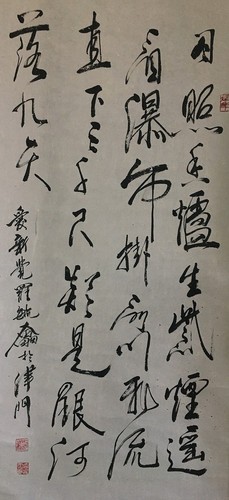 日照香爐生紫煙遥
看瀑布掛前川飛流
直下三千尺疑是銀河
落九天
愛新覺羅毓於津門